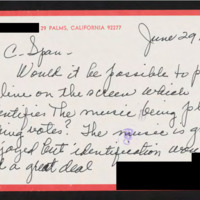 29 PALMS, CALIFORNIA 92277
June 29
C-Span-
Would it be possible to p
line on the screen which
entifies the music being pl
ing votes? The music is g
joyed but identification wou
d a great deal